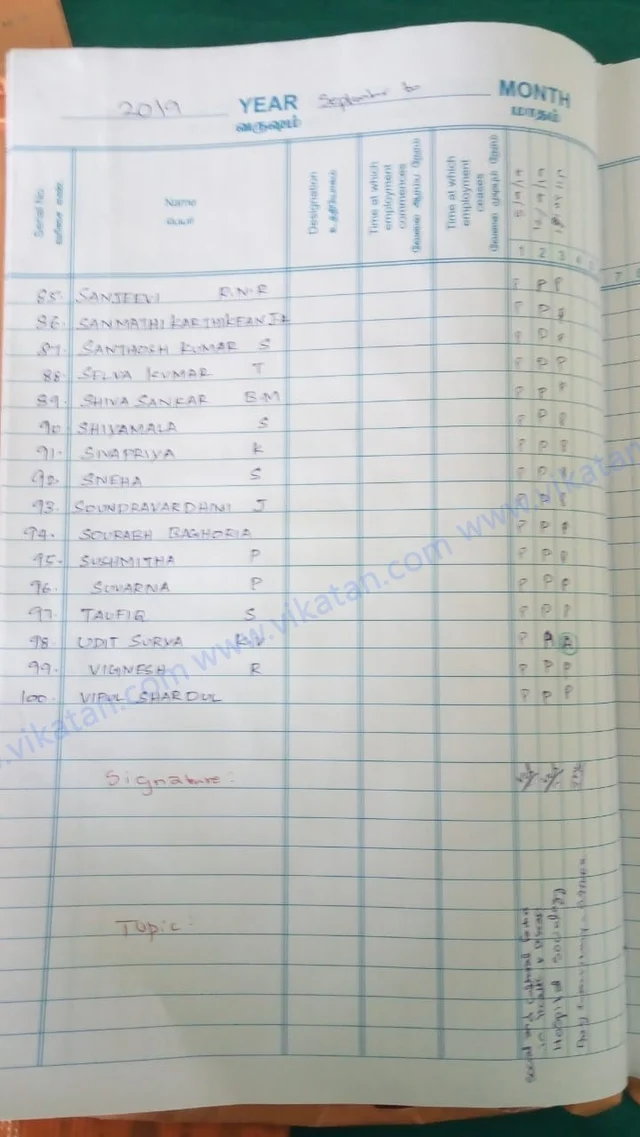 2019 YEAR September to MONTH
வருஷம் மாதம்
Serial No.
வரிசை எண்
Name
பெயர்
Designation
உத்தியோகம்
Time at which employment commences
வேலை ஆரம்ப நேரம்
Time at which employment ceases
வேலை முடியும் நேரம்
5/9/19
12/9/19
1 2 3 4 5 7 8
85. SANJEEVI R.N.R P P P
86. SANMATHI KARTHIKEYAN P P P
87. SANTHOSH KUMAR S P P P
88. SELVA KUMAR T P P P
89. SHIVA SANKAR B.M P P P
90. SHIYAMALA S P P P
91. SIVAPRIYA K P P P
92. SNEHA S P P P
93. SOUNDRAVARDHINI J P P P
94. SOURABH BAGHORIA P P P
95. SUSHMITHA P P P P
96. SUVARNA P P P P
97. TAUFIQ S P P P
98 UDIT SURYA K.V P A A
99. VIGNESH R P P P
100. VIPUL SHARDUL P P P
Signature:
Topic:
Hospital Sociology
www.vikatan.com www.vikatan.com www.vikatan